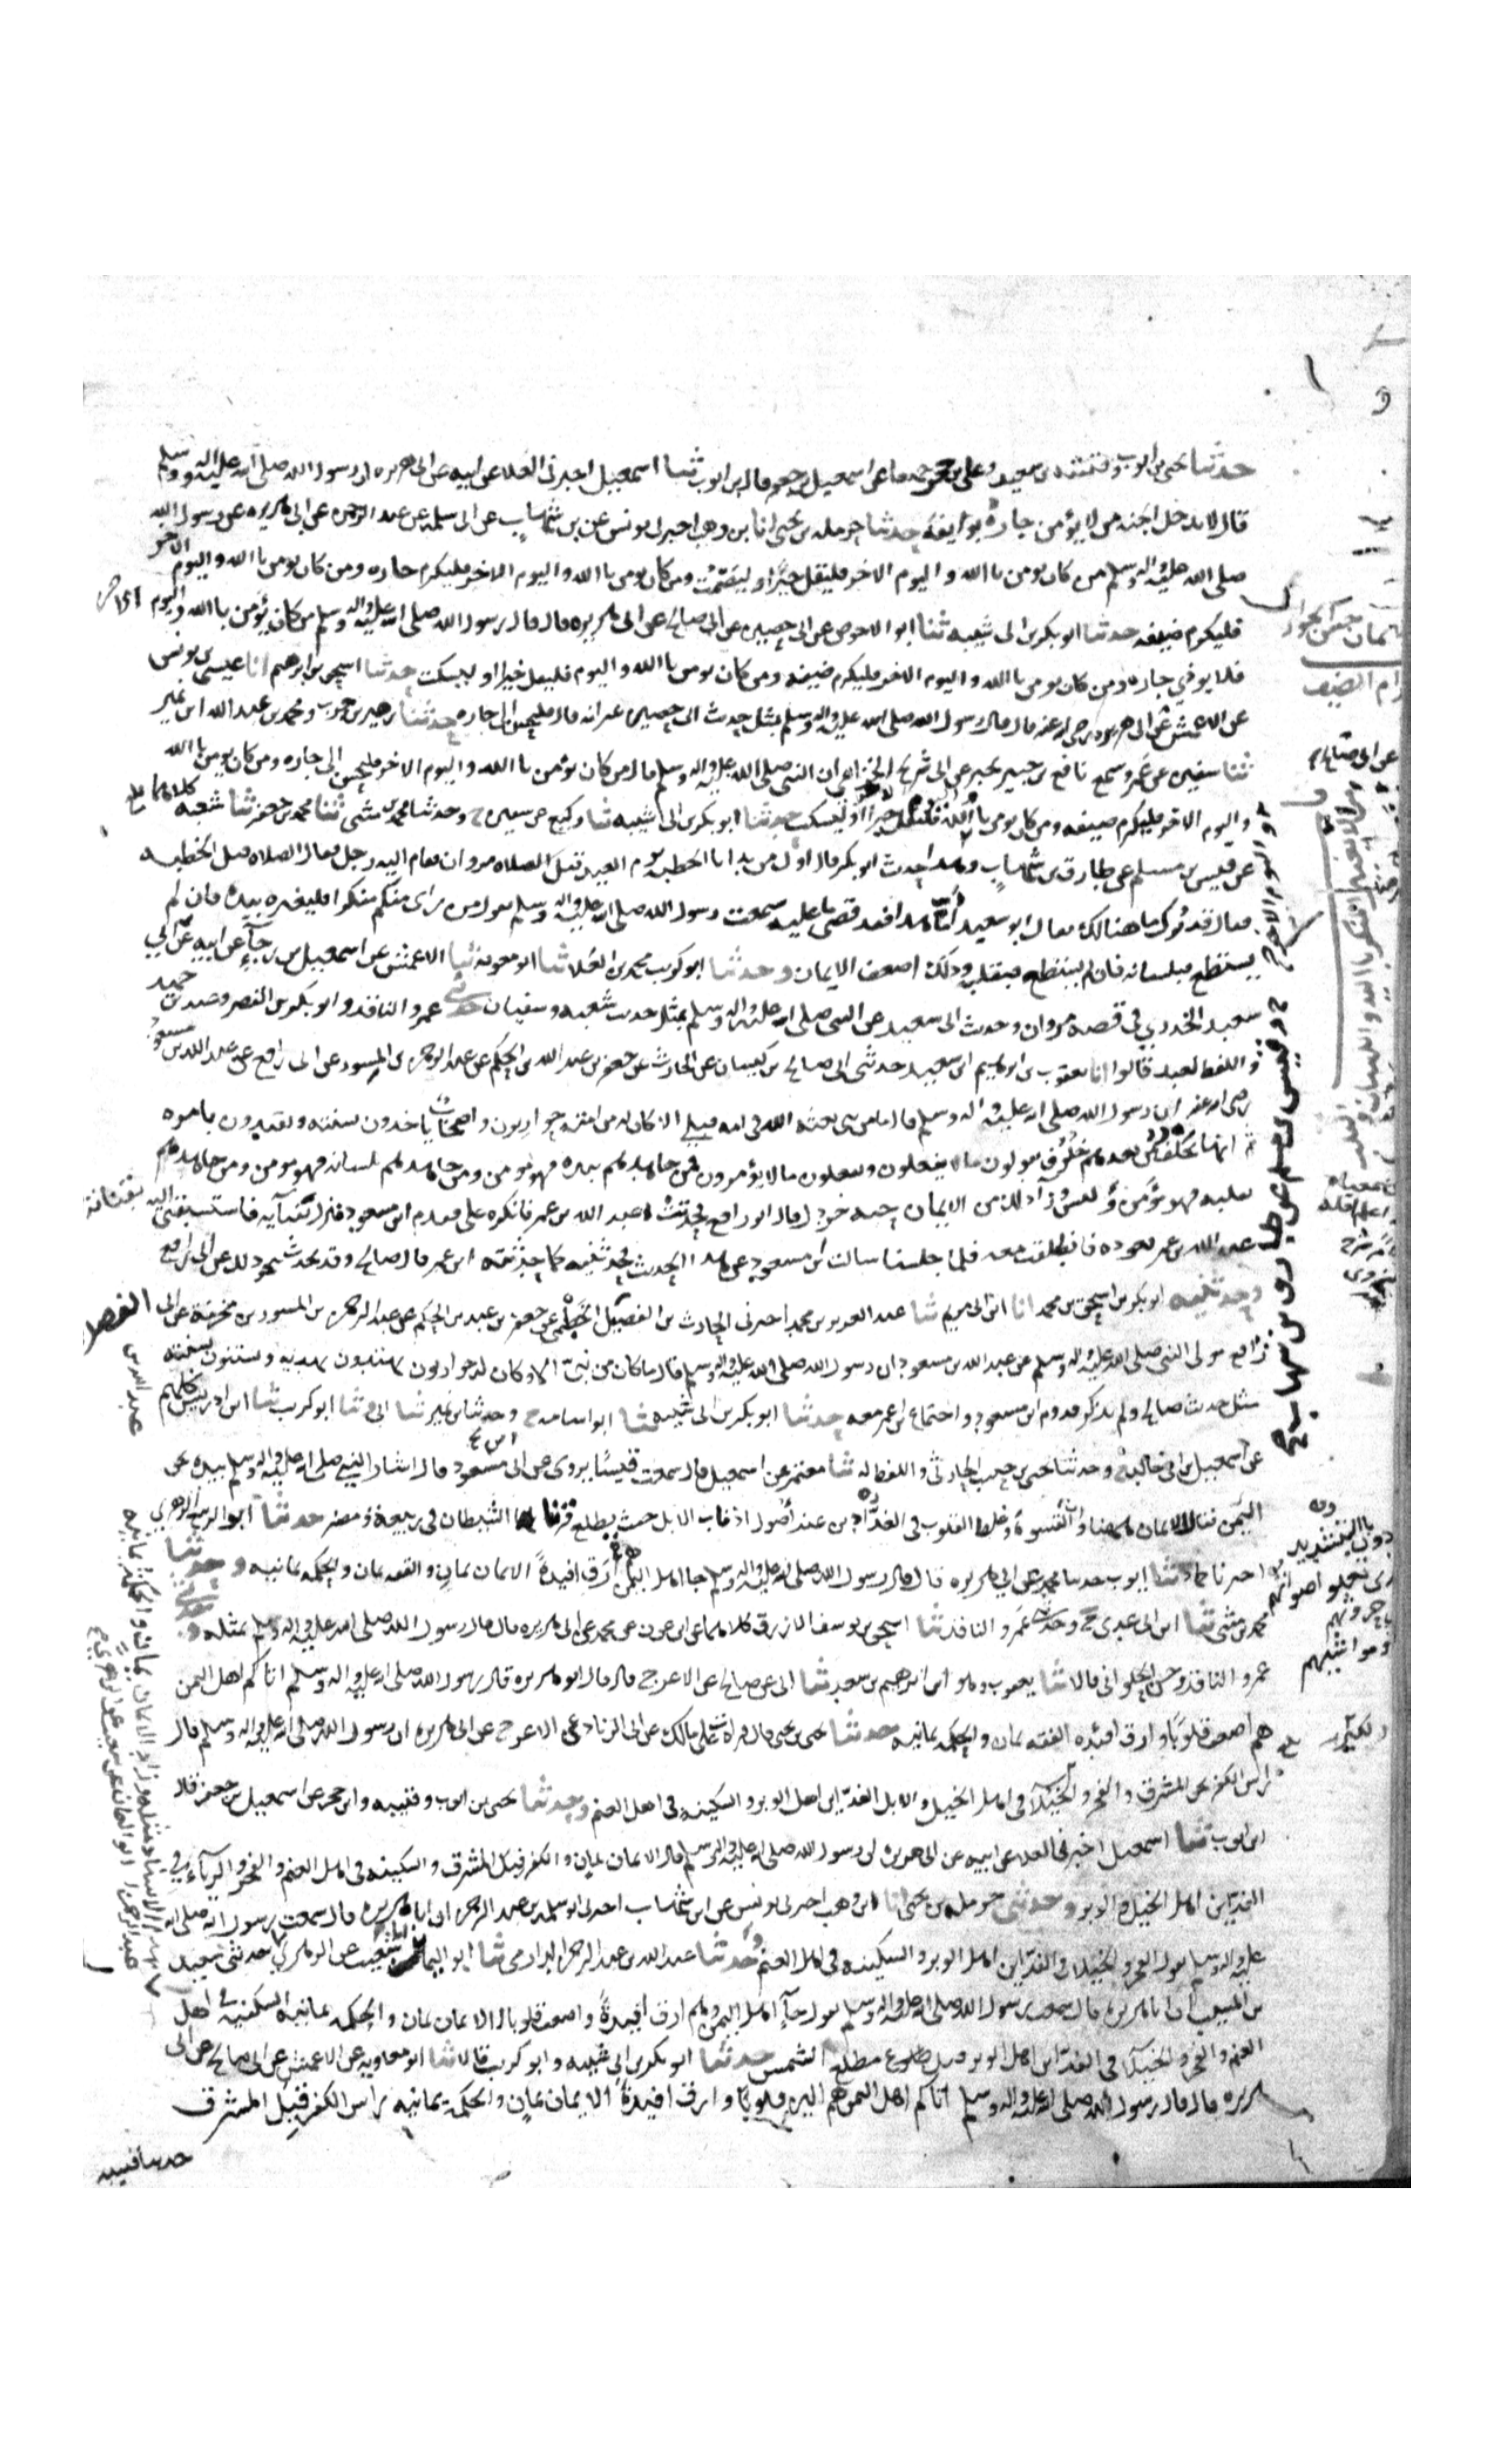 حدثنا يحيى بن ايوب وقتيبة بن سعيد وعلي بن حجر جميعا عن اسمعيل بن جعفر قال بن ايوب ثنا اسمعيل اخبرني العلا عن ابيه عن ابي هريره ان رسول الله صلى الله عليه واله وسلم
قال لا يدخل الجنه من لا يؤمن جاره بوايقه حدثنا حرمله بن يحيى انا بن وهب اخبرني يونس عن بن شهاب عن ابي سلمه بن عبد الرحمن عن ابي هريره عن رسول الله
صلى الله عليه واله وسلم من كان يومن باالله واليوم الاخر فليقل خيرا او ليصمت ومن كان يومن باالله واليوم الاخر فليكرم جاره ومن كان يومن باالله واليوم الاخر
فليكرم ضيفه حدثنا ابو بكر بن ابي شيبه ثنا ابو الاحوص عن ابي حصين عن ابي صالح عن ابي هريره قال قال رسول الله صلى الله عليه واله وسلم من كان يؤمن باالله واليوم الاخر
فلا يوذي جاره ومن كان يومن باالله واليوم الاخر فليكرم ضيفه ومن كان يومن باالله واليوم فليقل خيرا او ليسكت حدثنا اسحق بن ابرهيم انا عيسى بن يونس
عن الاعمش عن ابي هريره رضي الله عنه قال قال رسول الله صلى الله عليه واله وسلم بمثل حديث ابي حصين غير انه قال فليحسن الى جاره حدثنا زهير بن حرب ومحمد بن عبد الله ابن نمير
ثنا سفين عن عمرو سمع نافع بن جبير يخبر عن ابي شريح الخزاعي ان النبي صلى الله عليه واله وسلم قال من كان يؤمن باالله واليوم الاخر فليحسن الى جاره ومن كان يومن باالله
واليوم الاخر فليكرم ضيفه ومن كان يومن باالله فليقل خيرا او ليسكت حدثنا ابو بكر بن ابي شيبه ثنا وكيع عن سفين ح وحدثنا محمد بن مثنى ثنا محمد بن جعفر ثنا شعبه كلاهما
عن قيس بن مسلم عن طارق بن شهاب وهذا حديث ابو بكر قال اول من بدا باالخطبه يوم العيد قبل الصلاه مروان فقام اليه رجل فقال الصلاه قبل الخطبه
فقال قد ترك ما هنالك فقال ابو سعيد اما هذا فقد قضى ما عليه سمعت رسول الله صلى الله عليه واله وسلم يقول من راى منكم منكرا فليغيره بيده فان لم
يستطع فبلسانه فان لم يستطع فبقلبه وذلك اضعف الايمان وحدثنا ابو كريب محمد بن العلا ثنا ابو معويه ثنا الاعمش عن اسمعيل بن رجآء عن ابيه عن ابي
سعيد الخدري في قصه مروان وحديث ابي سعيد عن النبي صلى الله عليه واله وسلم بمثل حديث شعبه وسفيان حدثني عمرو الناقد وابو بكر بن النضر وعبد بن حميد
واللفظ لعبد قالوا انا يعقوب بن ابرهيم ابن سعيد حدثني ابي صالح بن كيسان عن الحارث عن جعفر بن عبد الله بن الحكم عن عبد الرحمن بن المسور عن ابي رافع عن عبد الله بن مسعود
رضي الله عنه ان رسول الله صلى الله عليه واله وسلم قال ما من نبي بعثه الله في امه قبلي الا كان له من امته حواريون واصحاب ياخذون بسنته ويقتدون بامره
ثم انها تخلف من بعدهم خلوف يقولون ما لا يفعلون ويفعلون ما لا يؤمرون فمن جاهدهم بيده فهو مومن ومن جاهدهم بلسانه فهو مومن ومن جاهدهم
بقلبه فهو مؤمن وليس ورآ ذلك من الايمان حبه خردل قال ابو رافع فحدثت عبد الله بن عمر فانكره علي فقدم ابن مسعود فنزل بقناه فاستتبعني اليه
عبد الله بن عمر يعوده فانطلقت معه فلما جلسنا سالت ابن مسعود عن هذا الحديث فحدثنيه كما حدثته ابن عمر قال صالح وقد تحدث بنحو ذلك عن ابي رافع
وحدثنيه ابو بكر بن اسحق بن محمد انا ابن ابي مريم ثنا عبد العزيز بن محمد اخبرني الحارث بن الفضيل الخطمي عن جعفر بن عبد بن الحكم عن عبد الرحمن بن المسور بن مخرمة عن ابي
رافع مولى النبي صلى الله عليه واله وسلم عن عبد الله بن مسعود ان رسول الله صلى الله عليه واله وسلم قال ما كان من نبي الا وكان له حواريون يهتدون بهديه ويستنون بسنته
مثل حديث صالح ولم يذكر قدوم ابن مسعود واجتماع ابن عمر معه حدثنا ابو بكر بن ابي شيبه ثنا ابو اسامه ح وحدثنا بن نمير ثنا ابي ح ثنا ابو كريب ثنا ابن ادريس كلهم
عن اسمعيل بن ابي خالد ح وحدثنا يحيى بن حبيب الحارثي واللفظ له ثنا معتمر عن اسمعيل قال سمعت قيسا يروي عن ابي مسعود قال اشار النبي صلى الله عليه واله وسلم بيده نحو
اليمن فقال الايمان هاهنا وان القسوة وغلظ القلوب في الفدادين عند اصول اذناب الابل حيث يطلع قرنا الشيطان في ربيعة ومضر حدثنا ابو الربيع الزهري
اخبرنا حماد ثنا ايوب حدثنا محمد عن ابي هريره قال قال رسول الله صلى الله عليه واله وسلم جا اهل اليمن هم ارق افيدة الايمان يمان والفقه يمان والحكمه يمانيه وحدثنا
محمد بن مثنى ثنا ابن ابي عدي ح وحدثني عمرو الناقد ثنا اسحق بن يوسف الازرق كلاهما عن ابن عون عن محمد عن ابي هريره قال قال رسول الله صلى الله عليه واله وسلم بمثله وحدثني
عمرو الناقد وحسن الحلواني قالا ثنا يعقوب وهو ابن ابرهيم بن سعد ثنا ابي عن صالح عن الاعرج قال قال ابو هريره قال رسول الله صلى الله عليه واله وسلم اتاكم اهل اليمن
هم اضعف قلوبا وارق افئده الفقه يمان والحكمه يمانيه حدثنا يحيى بن يحيى قال قرات على مالك عن ابي الزناد عن الاعرج عن ابي هريره ان رسول الله صلى الله عليه واله وسلم قال
راس الكفر نحو المشرق والفخر والخيلآ في اهل الخيل والابل الفدادين اهل الوبر والسكينه في اهل الغنم وحدثنا يحيى بن ايوب وقتيبه وابن حجر عن اسمعيل بن جعفر قال
ابن ايوب ثنا اسمعيل اخبرني العلا عن ابيه عن ابي هريره ان رسول الله صلى الله عليه واله وسلم قال الايمان يمان والكفر قبل المشرق والسكينه في اهل الغنم والفخر والريآء في
الفدادين اهل الخيل والوبر وحدثني حرمله بن يحيى انا ابن وهب اخبرني يونس عن ابن شهاب اخبرني ابو سلمه بن عبد الرحمن ان ابا هريره قال سمعت رسول الله صلى الله
عليه واله وسلم يقول الفخر والخيلا في الفدادين اهل الوبر والسكينه في اهل الغنم وحدثنا عبد الله بن عبد الرحمن الدارمي ثنا ابو اليمان انا شعيب عن الزهري حدثني سعيد
بن المسيب ان ابا هريره قال سمعت رسول الله صلى الله عليه واله وسلم يقول جآ اهل اليمن هم ارق افيدة واضعف قلوبا الايمان يمان والحكمه يمانيه السكينه في اهل
الغنم والفخر والخيلآ في الفدادين اهل الوبر قبل طلوع مطلع الشمس حدثنا ابو بكر بن ابي شيبه وابو كريب قالا ثنا ابو معاويه عن الاعمش عن ابي صالح عن ابي
هريره قال قال رسول الله صلى الله عليه واله وسلم اتاكم اهل اليمن هم الين قلوبا وارق افيدة الايمان يمان والحكمة يمانيه راس الكفر قبل المشرق
حدثنا قتيبه